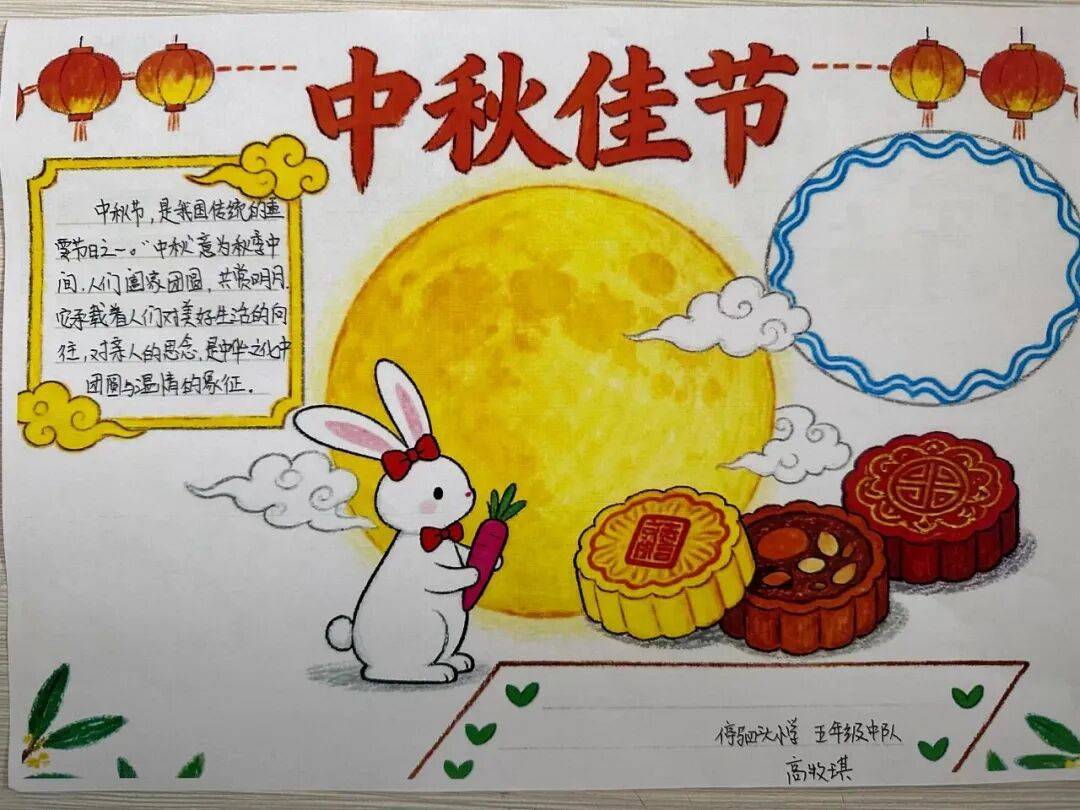 中秋佳节
中秋节，是我国传统的重
要节日之一。"中秋"意为秋季中
间，人们阖家团圆，共赏明月.
它承载着人们对美好生活的向
往，对亲人的思念，是中华文化中
团圆与温情的象征.
停驷头小学 五年级中队
高牧琪